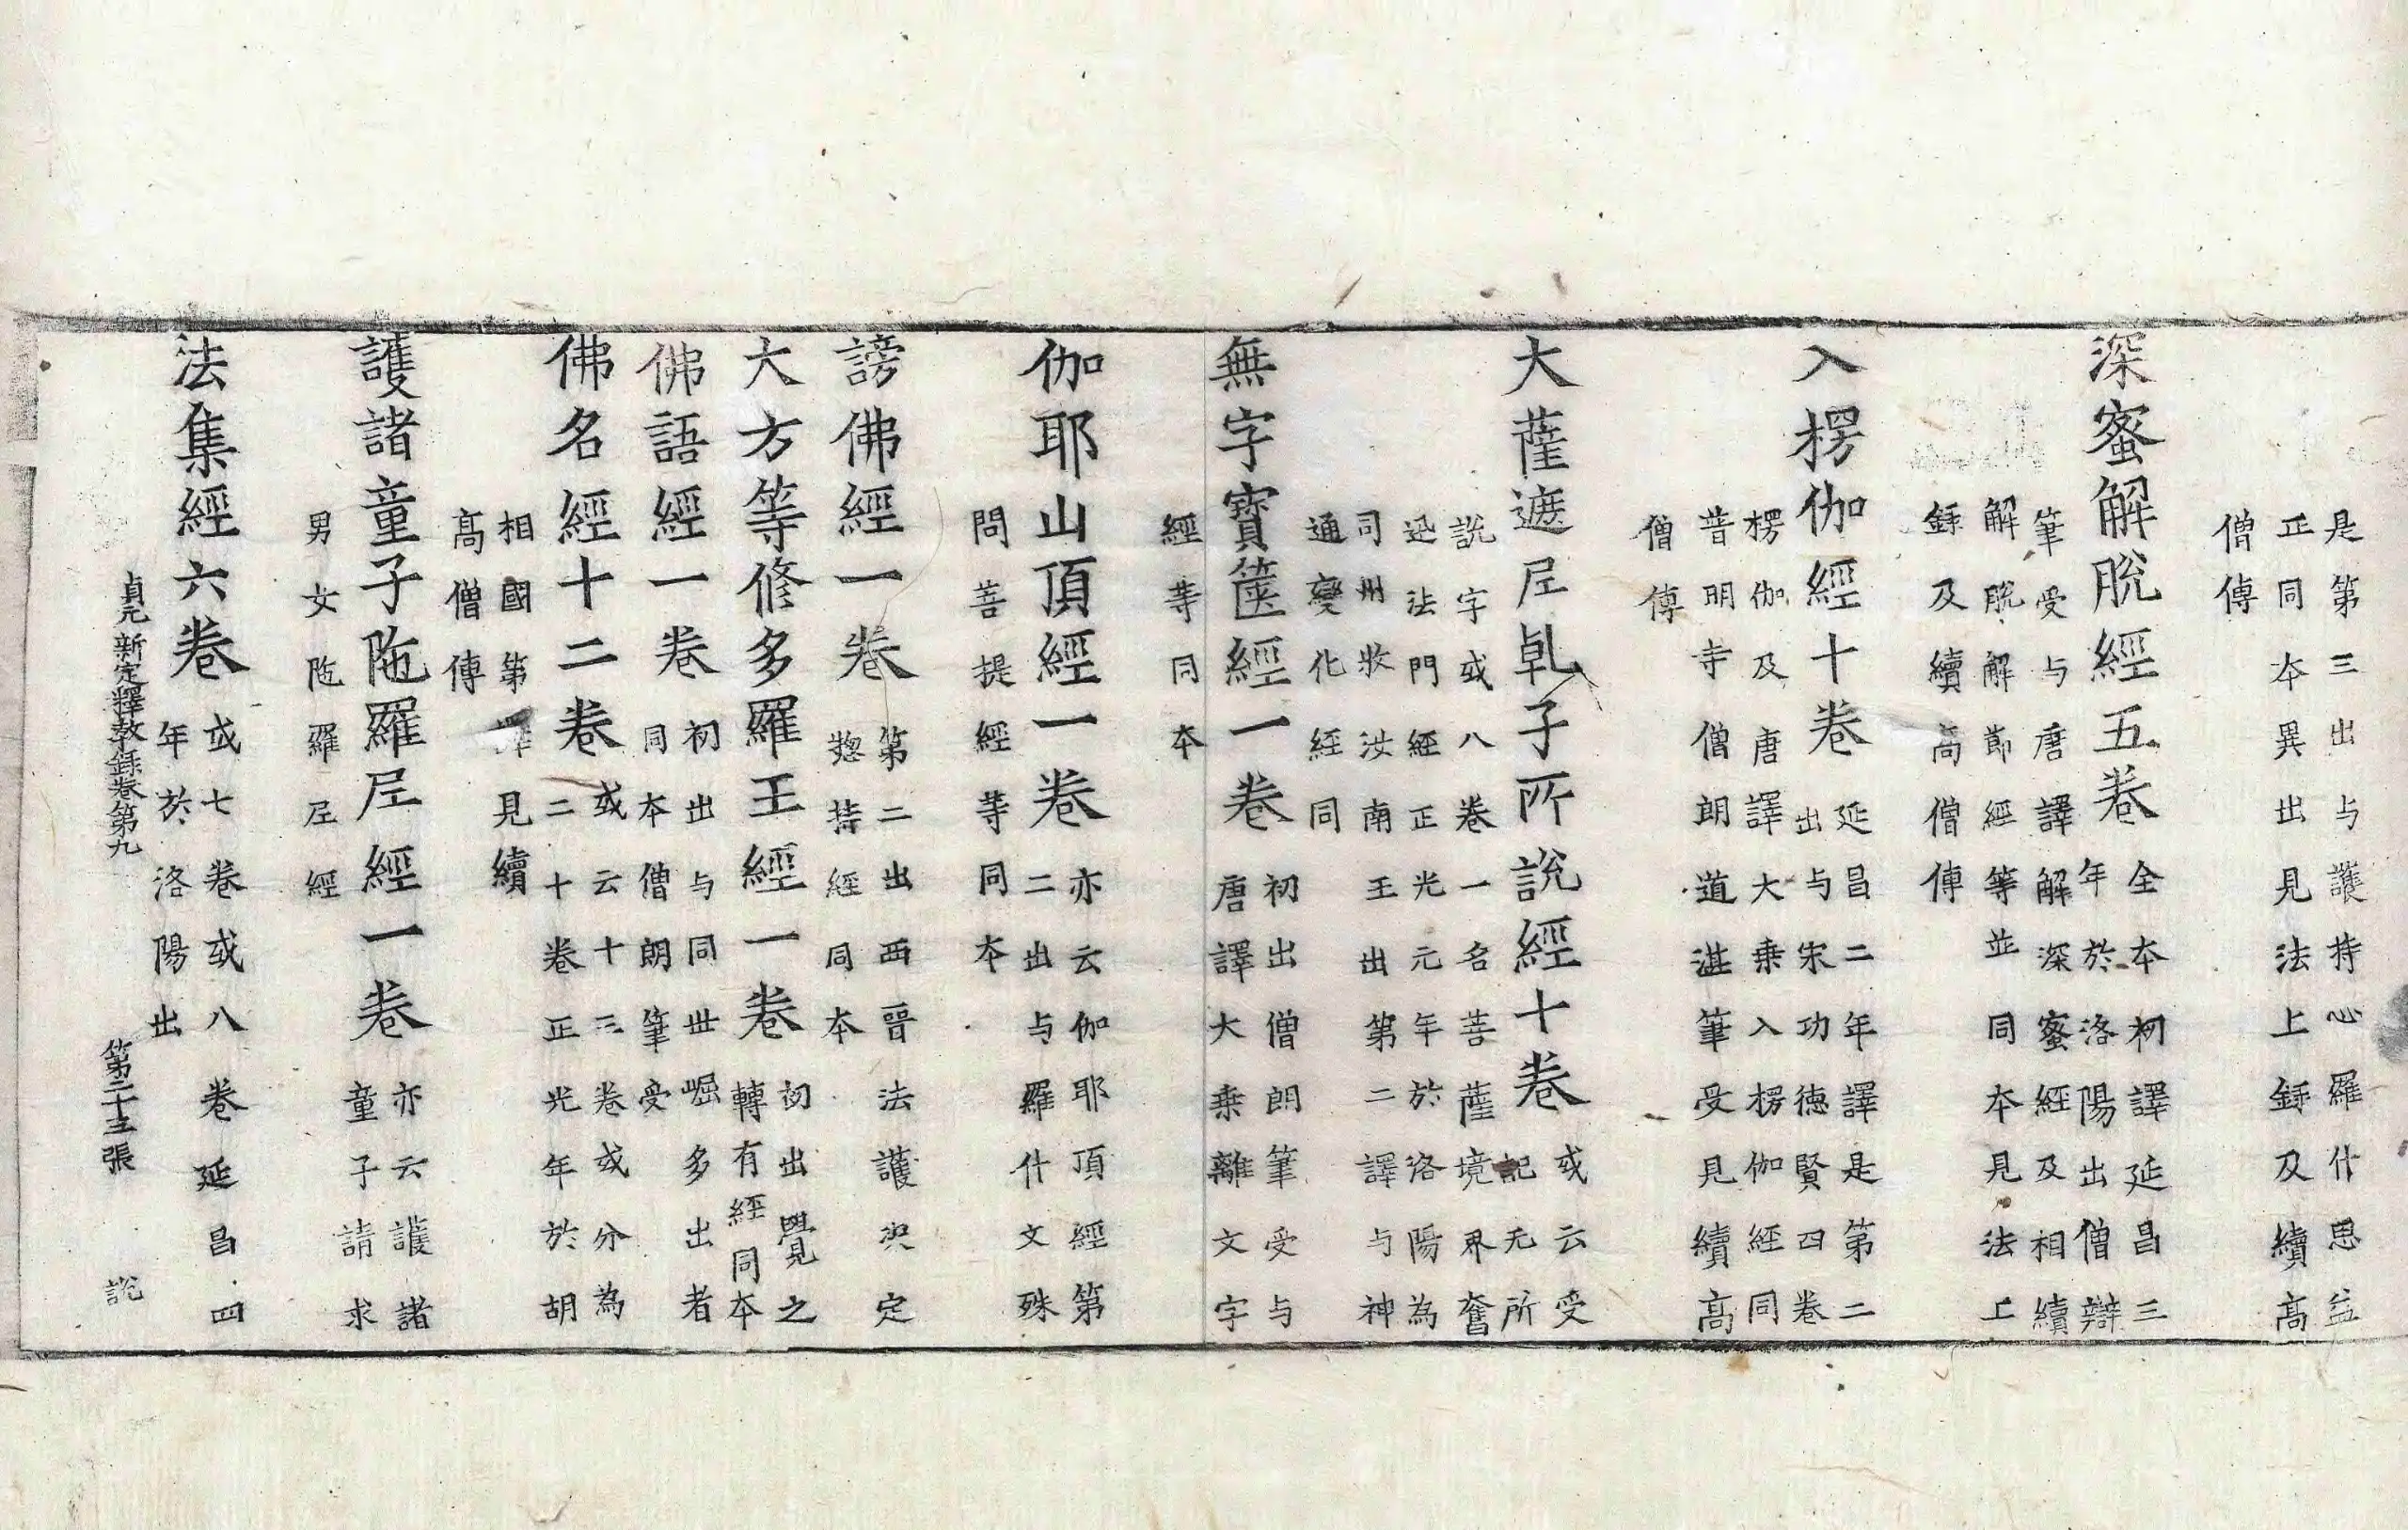 是第三出与護持心羅什思益
正同本異出見法上録及續高
僧傳
深蜜解脫經五巻
全本初譯延昌三
年於洛陽出僧辯
筆受与唐譯解深蜜經及相續
解脫解節經等並同本見法上
録及續高僧傳
入楞伽經十巻
延昌二年譯是第二
出与宋功德賢四巻
楞伽及唐譯大乗入楞伽經同
普明寺僧朗道湛筆受見續高
僧傳
大薩遮尼乹子所說經十巻
或云受
記无所
說字或八巻一名菩薩境界奮
迅法門經正光元年於洛陽為
司州牧汝南王出第二譯与神
通變化経同
無字寶篋經一巻
初出僧朗筆受与
唐譯大乗離文字
經等同本
伽耶山頂經一巻
亦云伽耶頂經第
二出与羅什文殊
問菩提經等同本
謗佛經一巻
第二出西晉法護決定
揔持經同本
大方等修多羅王經一巻
初出覺之
轉有經同本
佛語經一巻
初出与同世崛多出者
同本僧朗筆受
佛名經十二巻
或云十三巻或分為
二十巻正光年於胡
相國第譯見續
高僧傳
護諸童子陁羅尼經一巻
亦云護諸
童子請求
男女陁羅尼經
法集經六巻
或七巻或八巻延昌四
年於洛陽出
貞元新定釋教録巻第九 第二十三張 說